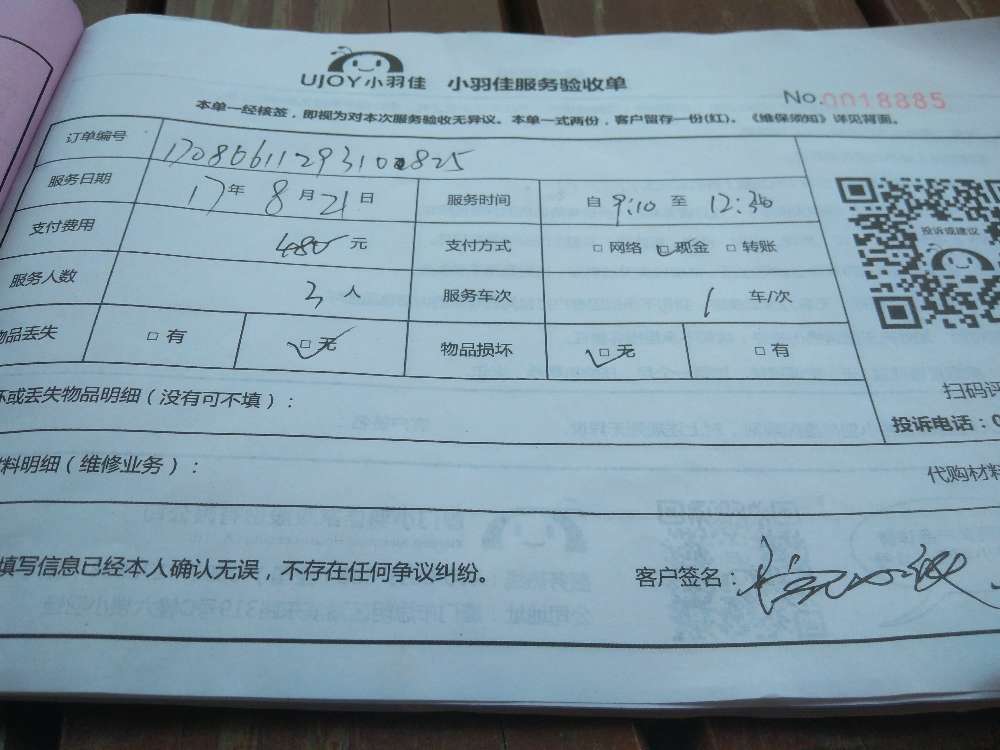 UJOY小羽佳 小羽佳服务验收单
No.0018885
本单一经核签，即视为对本次服务验收无异议。本单一式两份，客户留存一份(红)。《维保须知》详见背面。
订单编号
服务日期 17年 8月 21日 服务时间 自 9:10 至 12:30
支付费用 480 元 支付方式 □ 网络 □ 现金 □ 转账
服务人数 3 人 服务车次 1 车/次
物品丢失 □ 有 □ 无 物品损坏 □ 无 □ 有
投诉或建议
扫码评
坏或丢失物品明细（没有可不填）：
投诉电话：0
料明细（维修业务）：
代购材料
填写信息已经本人确认无误，不存在任何争议纠纷。
客户签名：